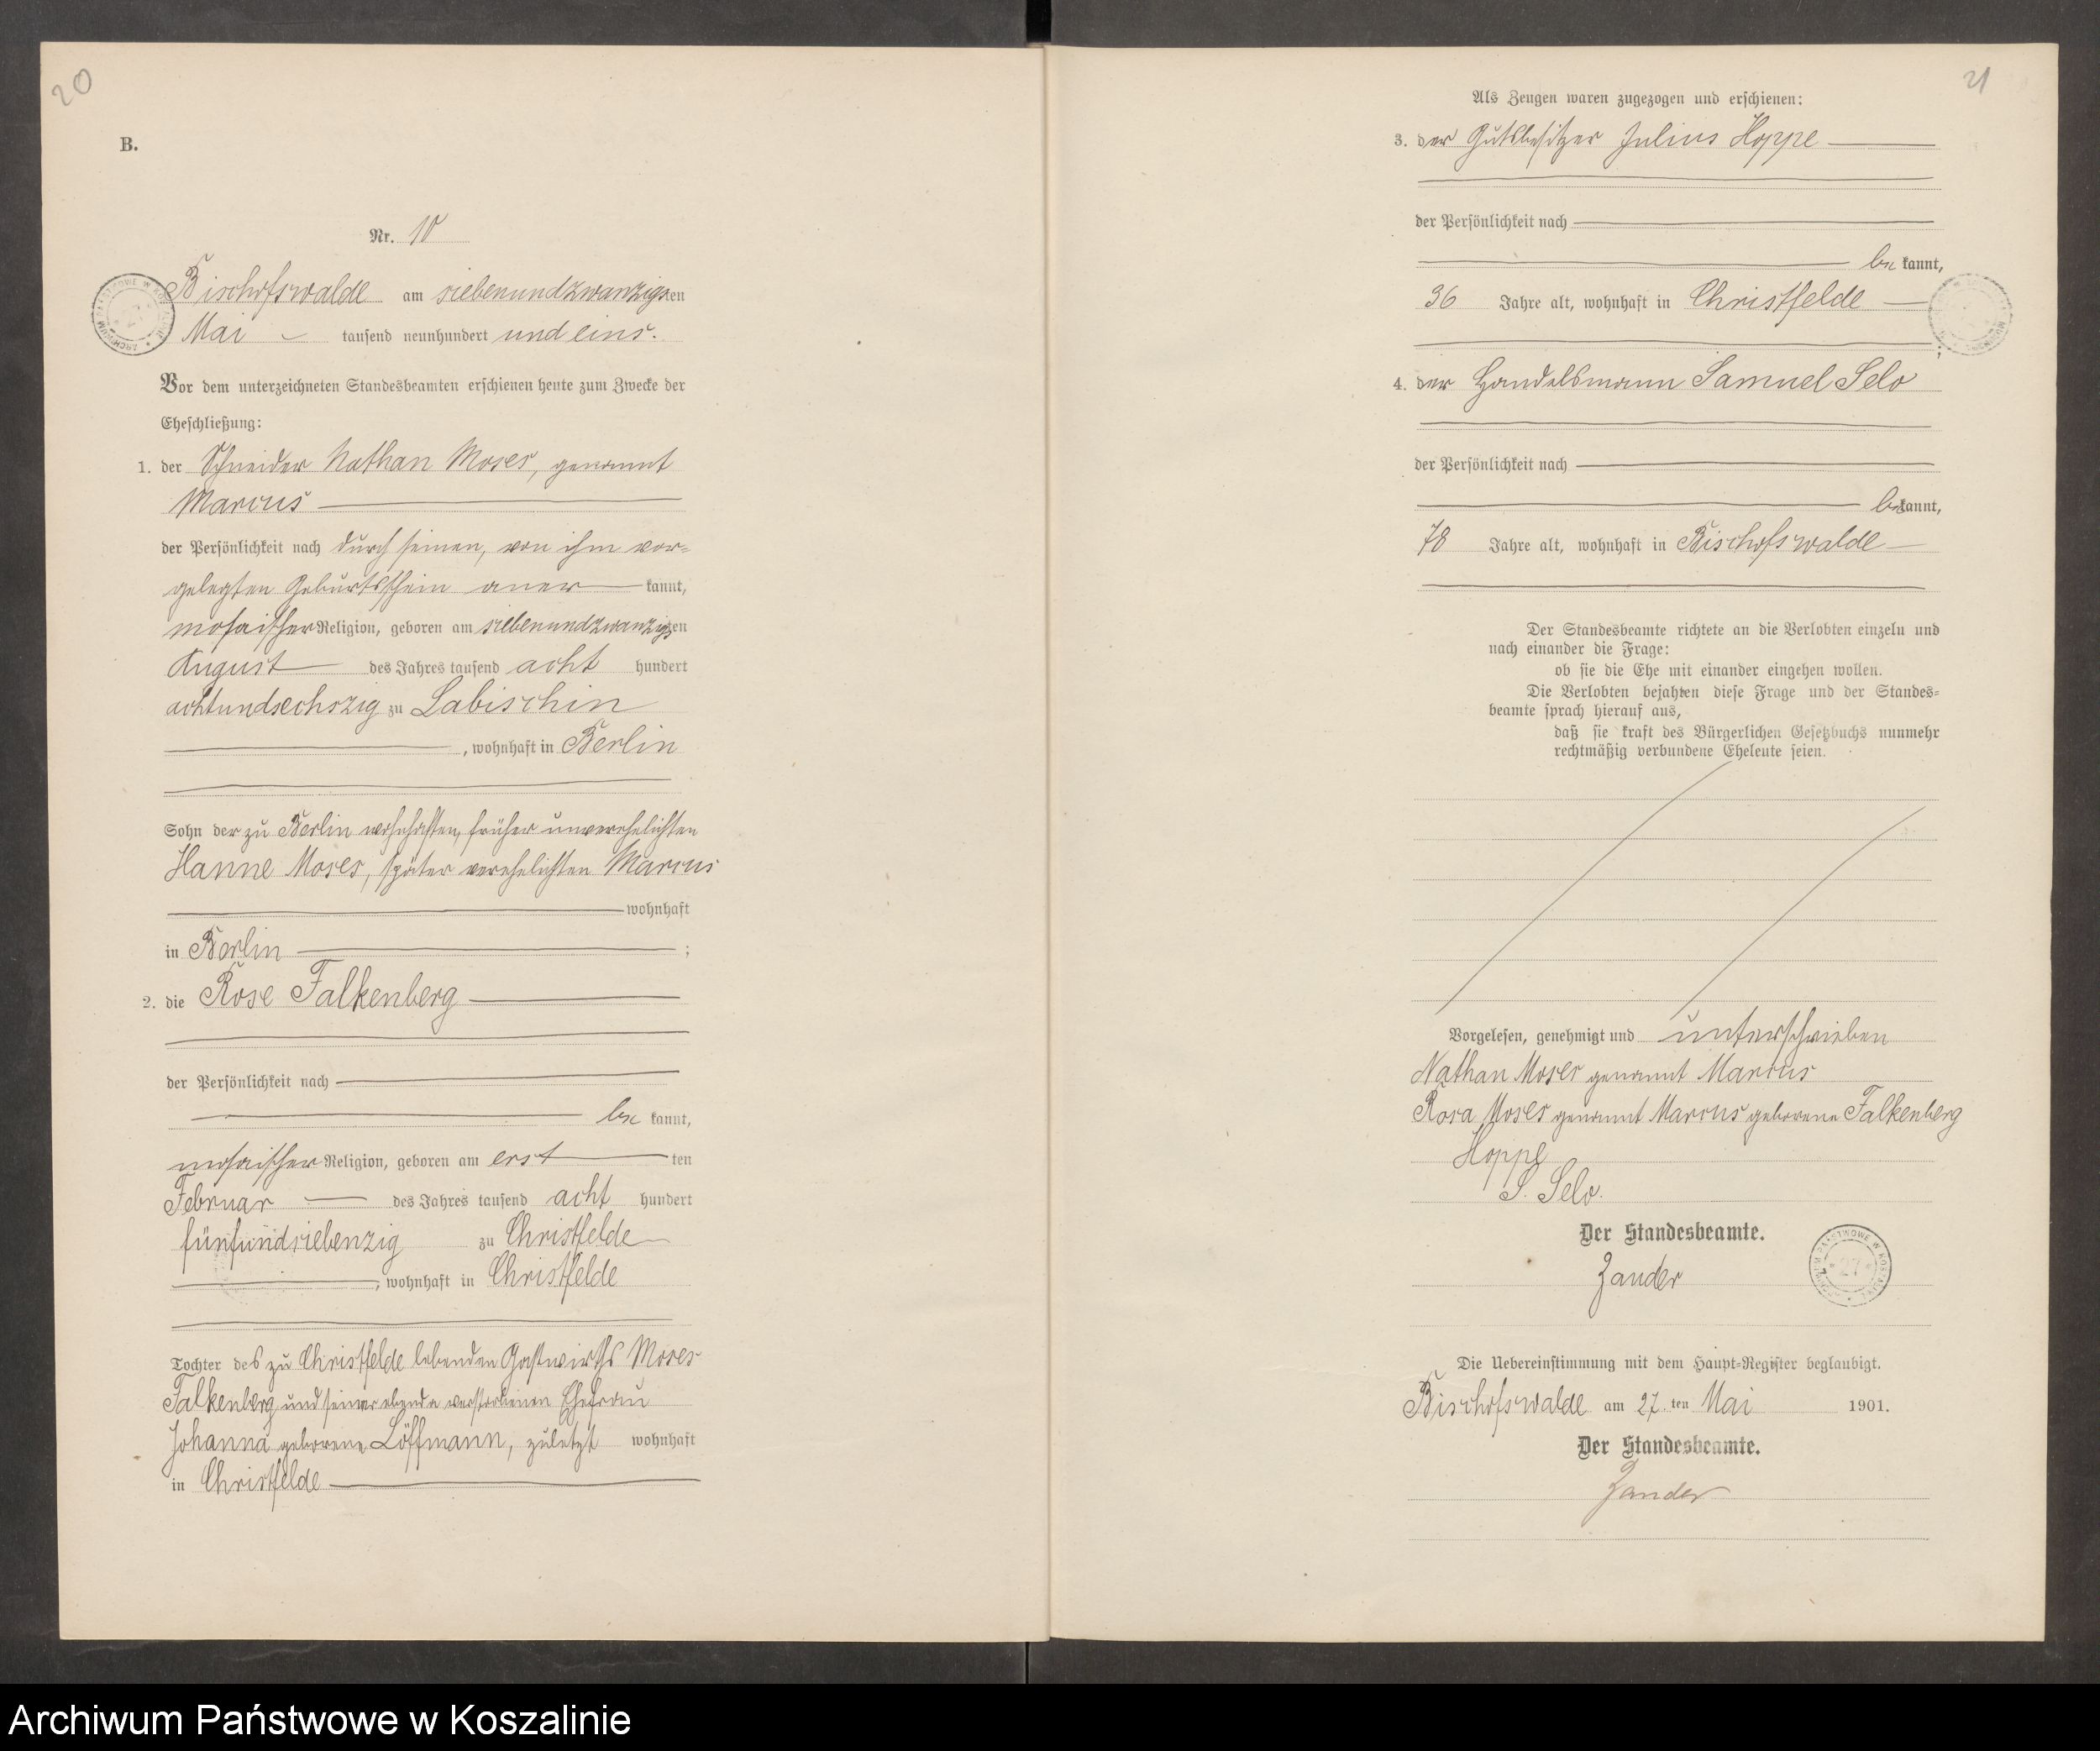 20
B.
Nr. 10
Bischofswalde am siebenundzwanzigsten
Mai tausend neunhundert und eins.
Vor dem unterzeichneten Standesbeamten erschienen heute zum Zwecke der
Eheschließung:
1. der Schneider Nathan Moses, genannt
Marcus
der Persönlichkeit nach durch seinen, von ihm vor=
gelegten Geburtsschein aner kannt,
mosaischer Religion, geboren am siebenundzwanzigsten
August des Jahres tausend acht hundert
achtundsechszig zu Labischin
, wohnhaft in Berlin
Sohn der zu Berlin wohnhaften, früher unverehelichten
Hanne Moses, später verehelichten Marcus
wohnhaft
in Berlin ;
2. die Rose Falkenberg
der Persönlichkeit nach
be kannt,
mosaischer Religion, geboren am erst ten
Februar des Jahres tausend acht hundert
fünfundsiebenzig zu Christfelde
, wohnhaft in Christfelde
Tochter des zu Christfelde lebenden Gastwirths Moses
Falkenberg und seiner ebenda verstorbenen Ehefrau
Johanna geborene Löffmann, zuletzt wohnhaft
in Christfelde
21
Als Zeugen waren zugezogen und erschienen:
3. der Gutsbesitzer Julius Hoppe
der Persönlichkeit nach
be kannt,
36 Jahre alt, wohnhaft in Christfelde
;
4. der Handelsmann Samuel Selo
der Persönlichkeit nach
be kannt,
78 Jahre alt, wohnhaft in Bischofswalde
Der Standesbeamte richtete an die Verlobten einzeln und
nach einander die Frage:
ob sie die Ehe mit einander eingehen wollen.
Die Verlobten bejahten diese Frage und der Standes=
beamte sprach hierauf aus,
daß sie kraft des Bürgerlichen Gesetzbuchs nunmehr
rechtmäßig verbundene Eheleute seien.
Vorgelesen, genehmigt und unterschrieben
Nathan Moses genannt Marcus
Rosa Moses genannt Marcus geborene Falkenberg
Hoppe
S. Selo.
Der Standesbeamte.
Zander
Die Uebereinstimmung mit dem Haupt=Register beglaubigt.
Bischofswalde am 27. ten Mai 1901.
Der Standesbeamte.
Zander
Archiwum Państwowe w Koszalinie